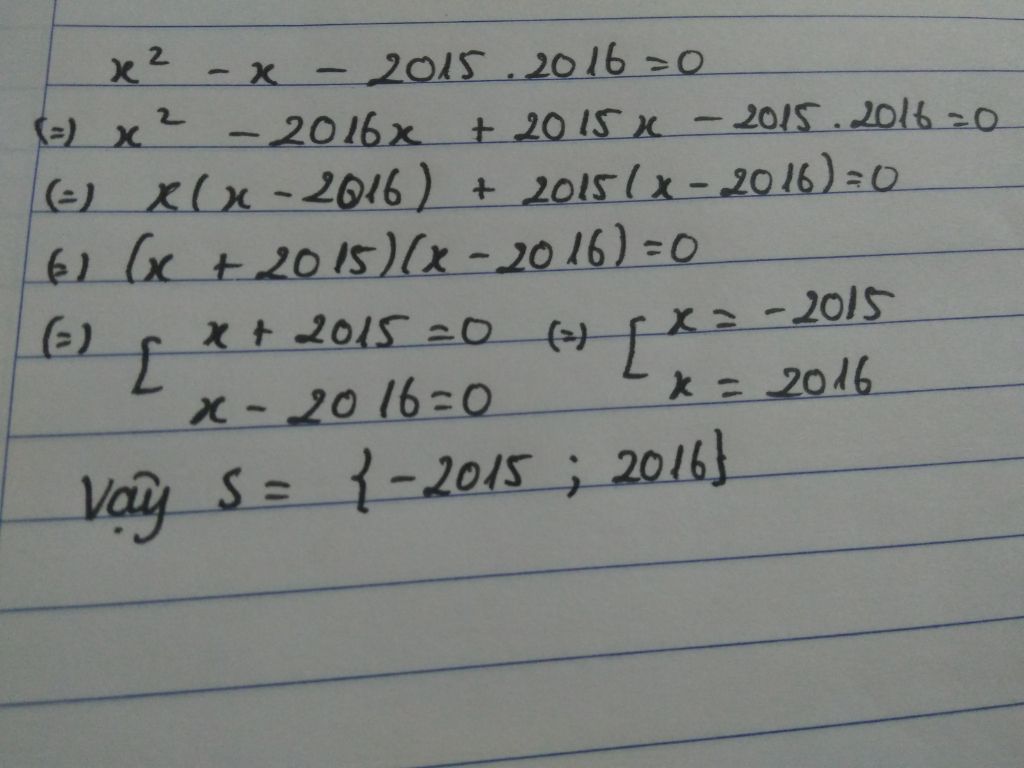 x² - x - 2015 . 2016 = 0
(=) x² - 2016x + 2015x - 2015 . 2016 = 0
(=) x(x - 2016) + 2015(x - 2016) = 0
(=) (x + 2015)(x - 2016) = 0
(=) [ x + 2015 = 0 (=) [ x = -2015
x - 2016 = 0 x = 2016
Vậy S = {-2015 ; 2016}